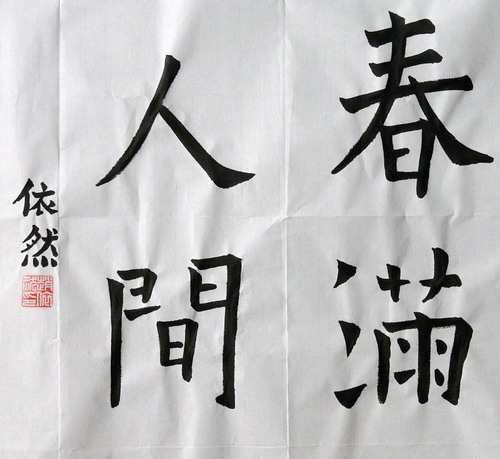 春滿
人間
依然